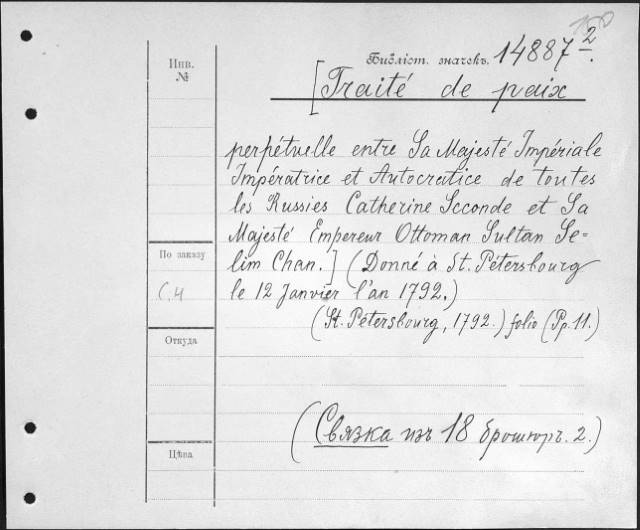 150
Инв.
№
Библіот. значекъ. 14887 2.
[Traité de paix
perpétuelle entre Sa Majesté Impériale
Impératrice et Autocratice de toutes
les Russies Catherine Seconde et Sa
Majesté Empereur Ottoman Sultan Se=
lim Chan.] (Donné à St. Pétersbourg
le 12 Janvier l'an 1792.)
(St. Pétersbourg, 1792.) folio (Pp. 11.)
По заказу
С.Ч
Откуда
Цѣна
(Связка изъ 18 брошюръ. 2.)